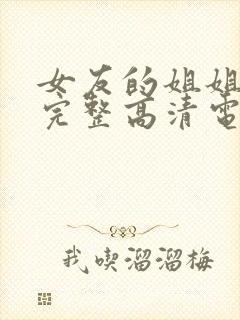 女友的姐姐
完整高清电
我喫溜溜梅